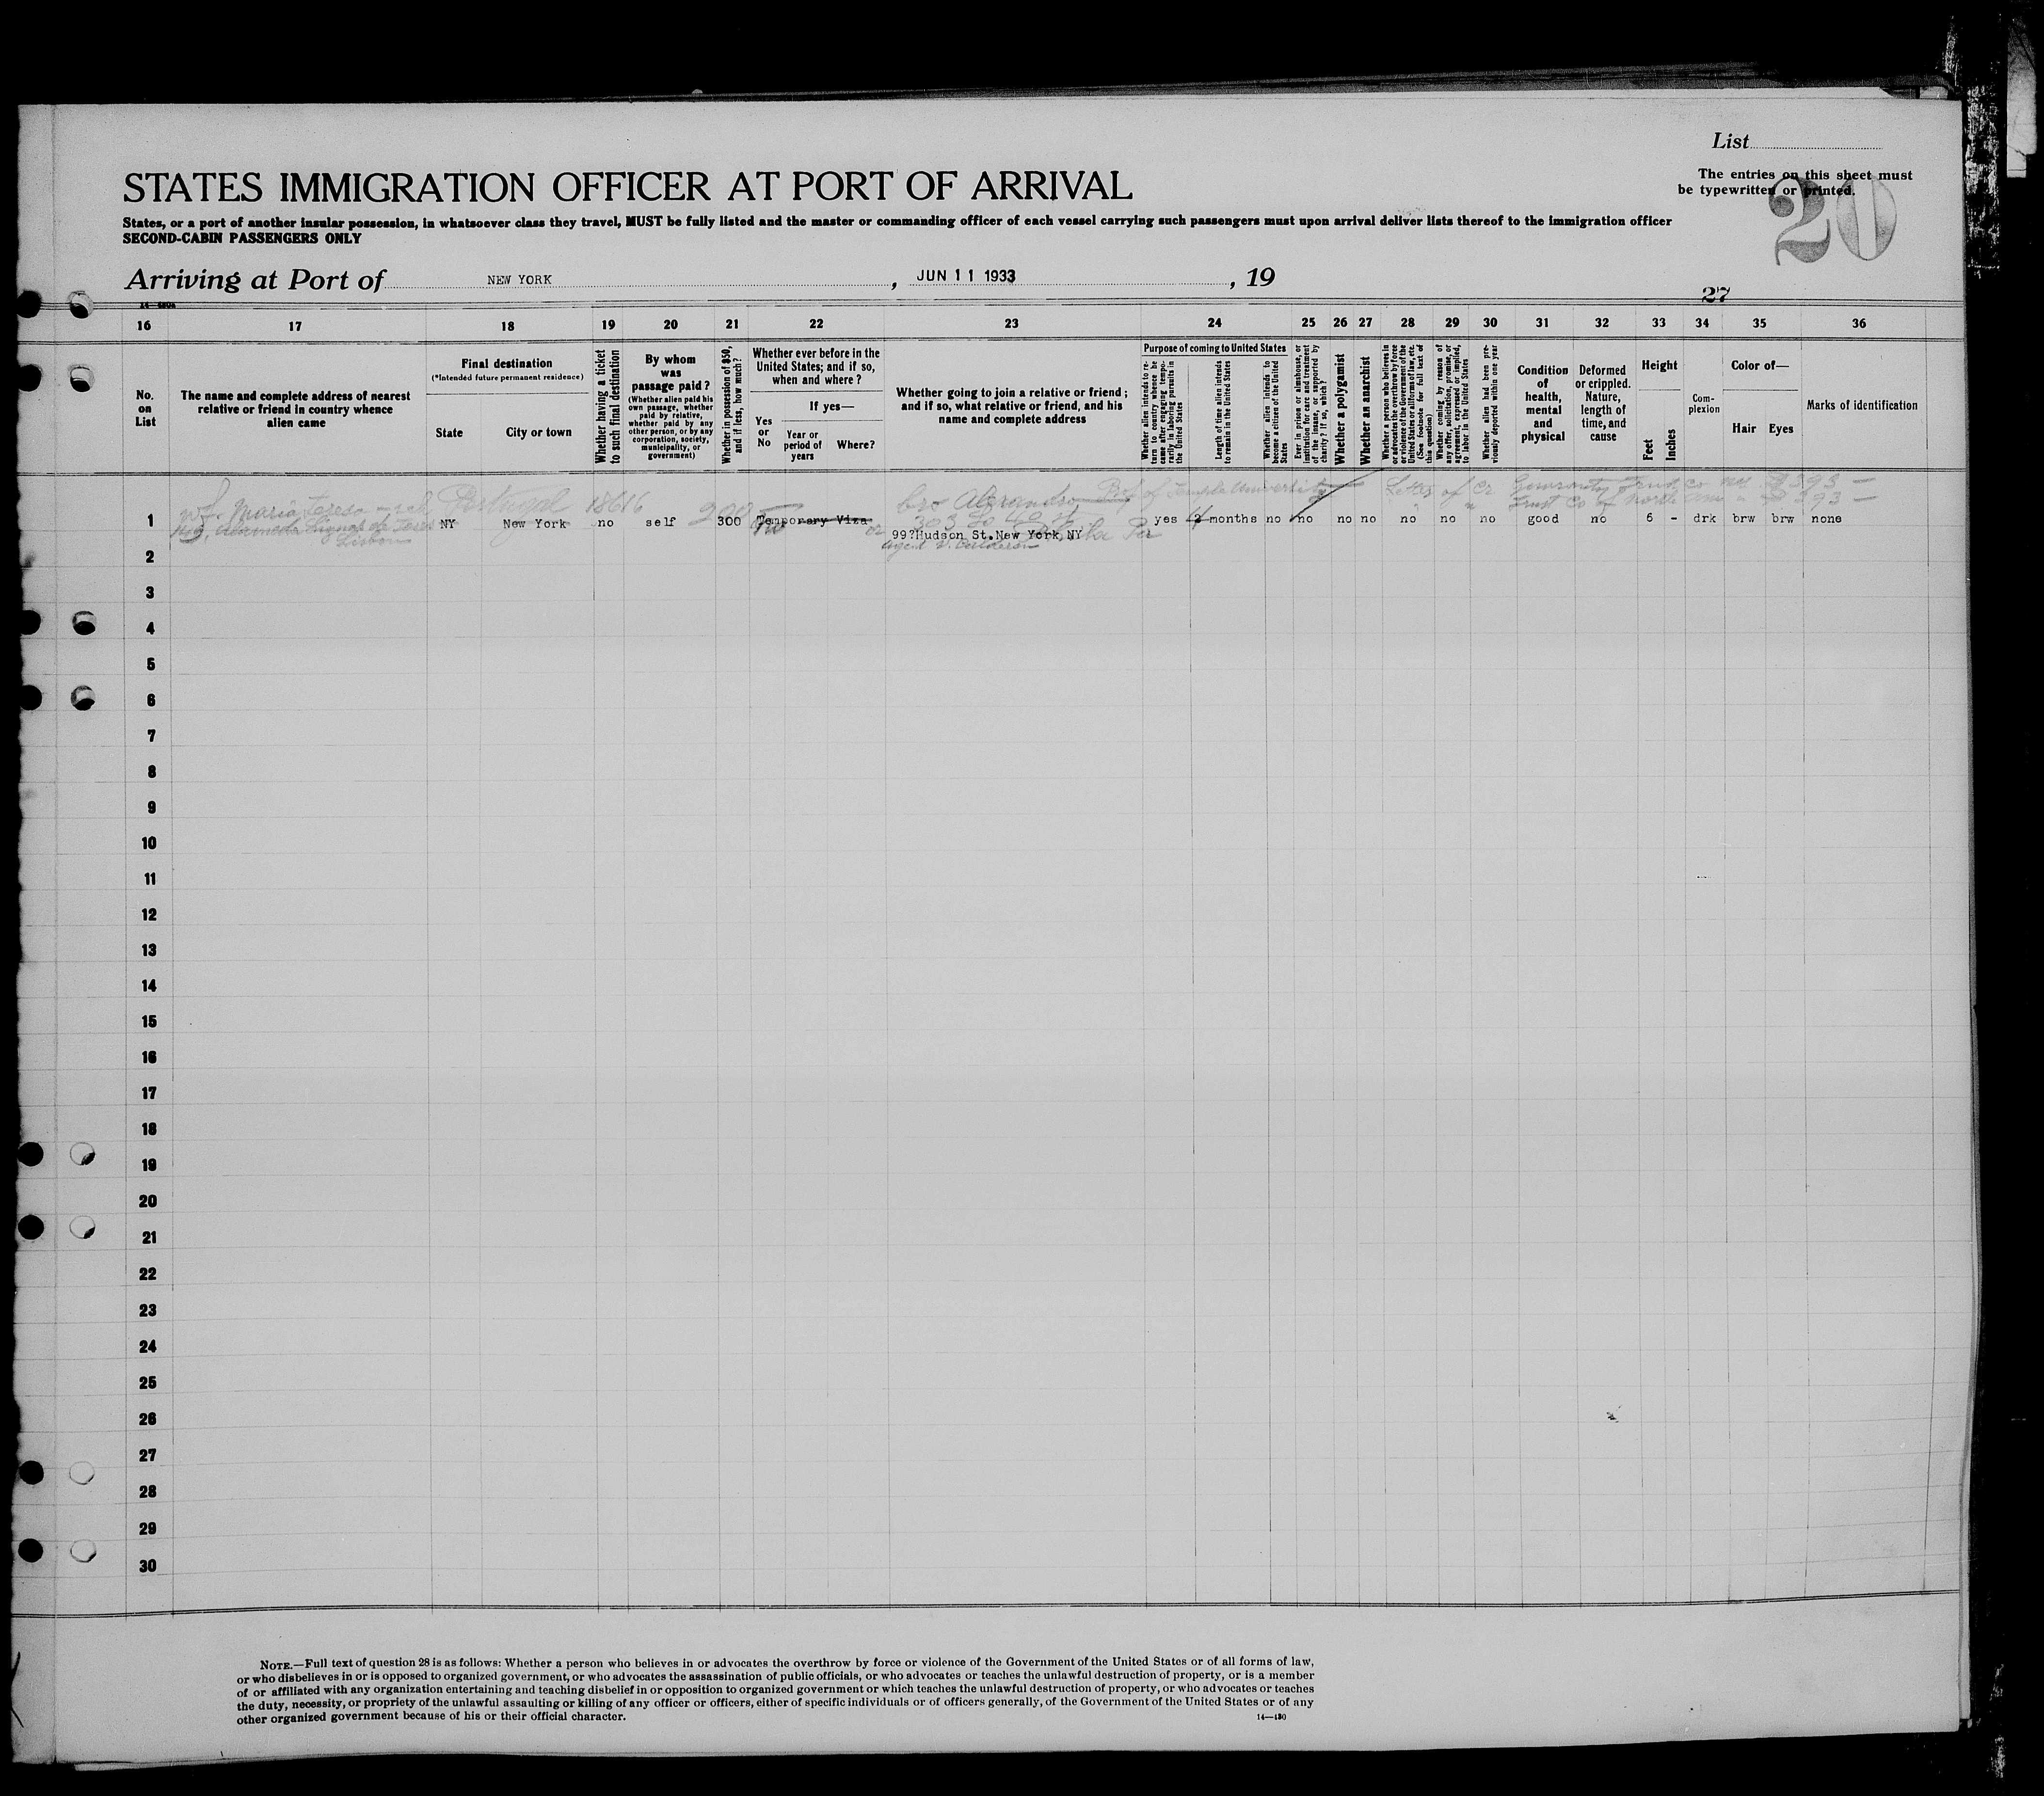 List
The entries on this sheet must
be typewritten or printed.
20
STATES IMMIGRATION OFFICER AT PORT OF ARRIVAL
States, or a port of another insular possession, in whatsoever class they travel, MUST be fully listed and the master or commanding officer of each vessel carrying such passengers must upon arrival deliver lists thereof to the immigration officer
SECOND-CABIN PASSENGERS ONLY
Arriving at Port of NEW YORK, JUN 11 1933, 19
27
16 17 18 19 20 21 22 23 24 25 26 27 28 29 30 31 32 33 34 35 36
No.
on
List
The name and complete address of nearest
relative or friend in country whence
alien came
Final destination
(*Intended future permanent residence)
State City or town
Whether having a ticket
to such final destination
By whom
was
passage paid?
(Whether alien paid his
own passage, whether
paid by relative,
whether paid by any
other person, or by any
corporation, society,
municipality, or
government)
Whether in possession of $50,
and if less, how much?
Whether ever before in the
United States; and if so,
when and where?
Yes
or
No
If yes—
Year or
period of
years
Where?
Whether going to join a relative or friend;
and if so, what relative or friend, and his
name and complete address
Purpose of coming to United States
Whether alien intends to re-
turn to country whence he
came after engaging tempo-
rarily in laboring pursuits in
the United States
Length of time alien intends
to remain in the United States
Whether alien intends to
become a citizen of the United
States
Ever in prison or almshouse, or
institution for care and treatment
of the insane, or supported by
charity? If so, which?
Whether a polygamist
Whether an anarchist
Whether a person who believes in
or advocates the overthrow by force
or violence of the Government of the
United States or all forms of law, etc.
(See footnote for full text of
this question)
Whether coming by reason of
any offer, solicitation, promise, or
agreement, expressed or implied,
to labor in the United States
Whether alien had been pre-
viously deported within one year
Condition
of
health,
mental
and
physical
Deformed
or crippled.
Nature,
length of
time, and
cause
Height
Feet
Inches
Com-
plexion
Color of—
Hair Eyes
Marks of identification
wf. Maria Teresa Portugal 18616 200 bro Alexandro, Prof of Temple University Letter of Cr Guaranty Trust Co $393 —
Trust Co of North $393 —
1 NY New York no self 300 Temporary Viza yes 2 months no no no no no no no good no 6 - drk brw brw none
No
Lisbon
99?Hudson St.New York,NY
Agent
2
3
4
5
6
7
8
9
10
11
12
13
14
15
16
17
18
19
20
21
22
23
24
25
26
27
28
29
30
NOTE.—Full text of question 28 is as follows: Whether a person who believes in or advocates the overthrow by force or violence of the Government of the United States or of all forms of law,
or who disbelieves in or is opposed to organized government, or who advocates the assassination of public officials, or who advocates or teaches the unlawful destruction of property, or is a member
of or affiliated with any organization entertaining and teaching disbelief in or opposition to organized government or which teaches the unlawful destruction of property, or who advocates or teaches
the duty, necessity, or propriety of the unlawful assaulting or killing of any officer or officers, either of specific individuals or of officers generally, of the Government of the United States or of any
other organized government because of his or their official character.
14—430